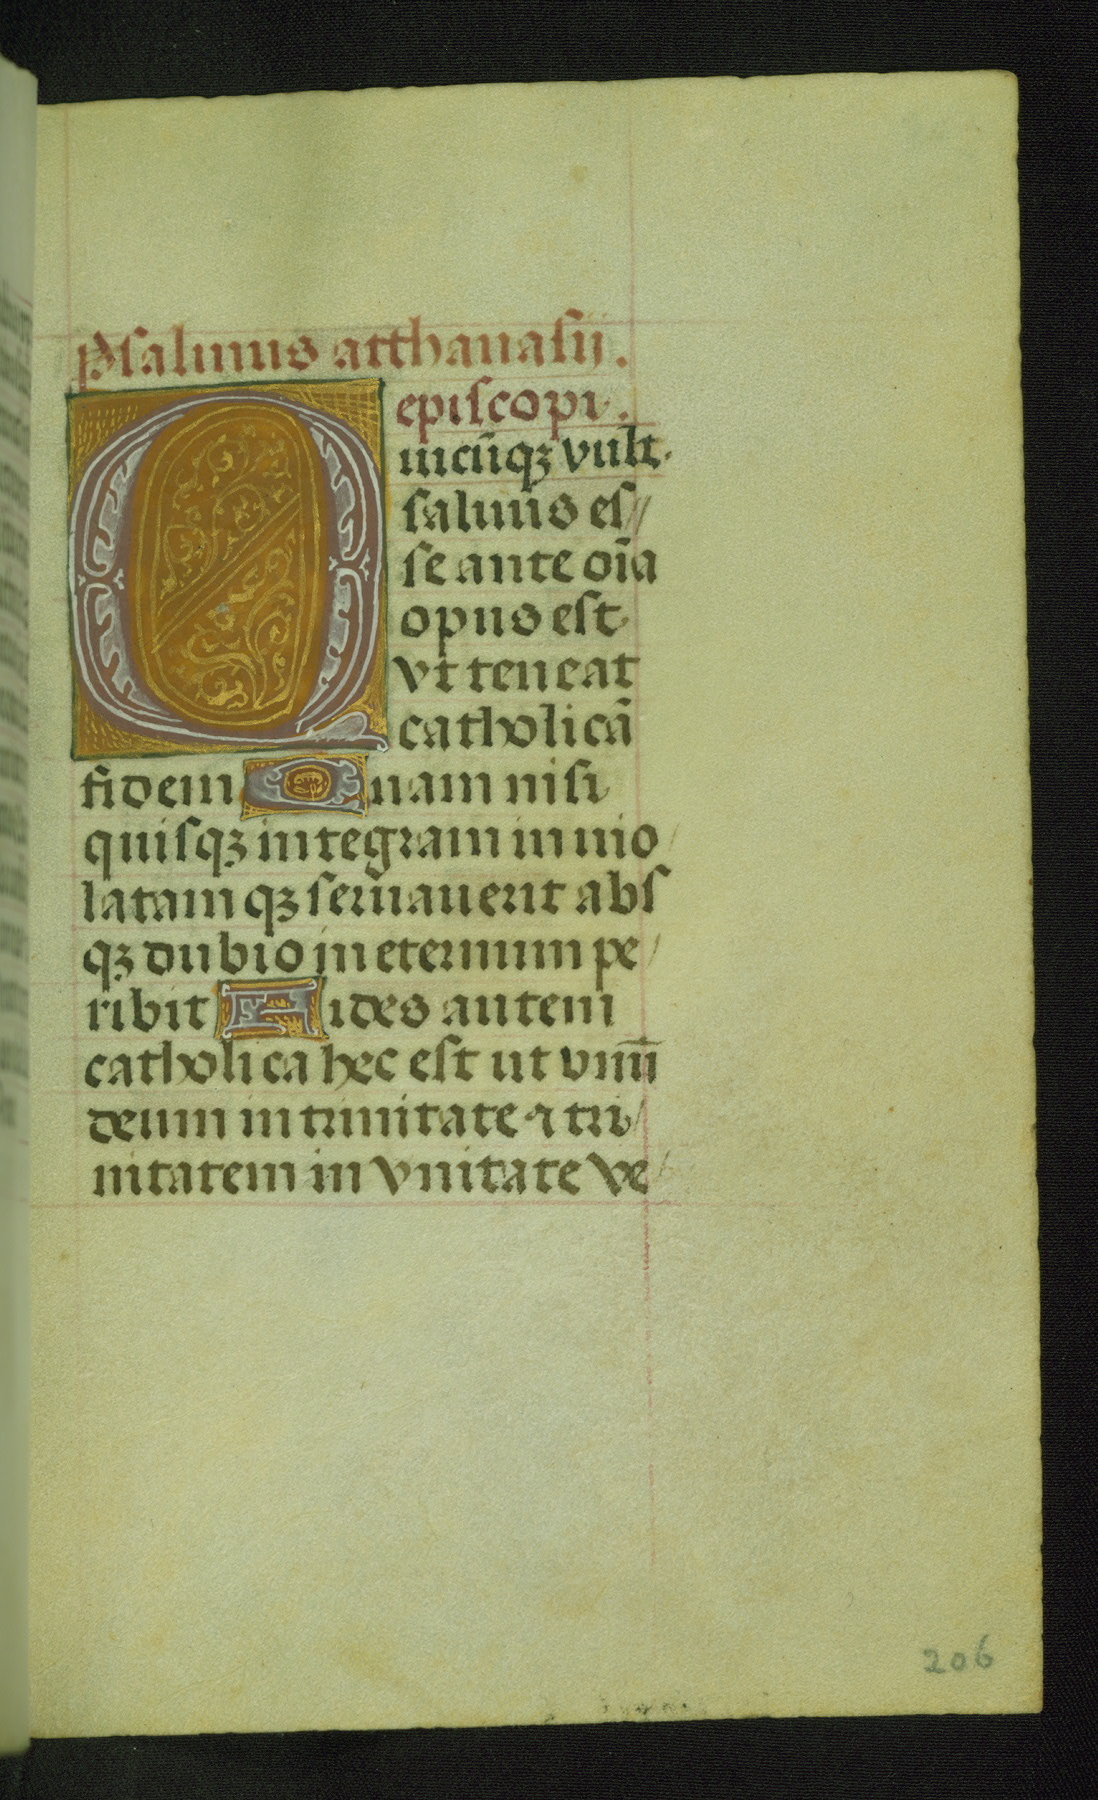 Psalmus atthanasij.
episcopi.
Quicūqꝫ vult.
saluus es//
se ante oīa
opus est
vt teneat
catholicā
fidem Quam nisi
quisqꝫ integram inuio/
latamqꝫ seruauerit abs
qꝫ dubio in eternum pe/
ribit Fides autem
catholica hec est ut vnū
deum in trinitate ⁊ tri/
nitatem in vnitate ve/
206